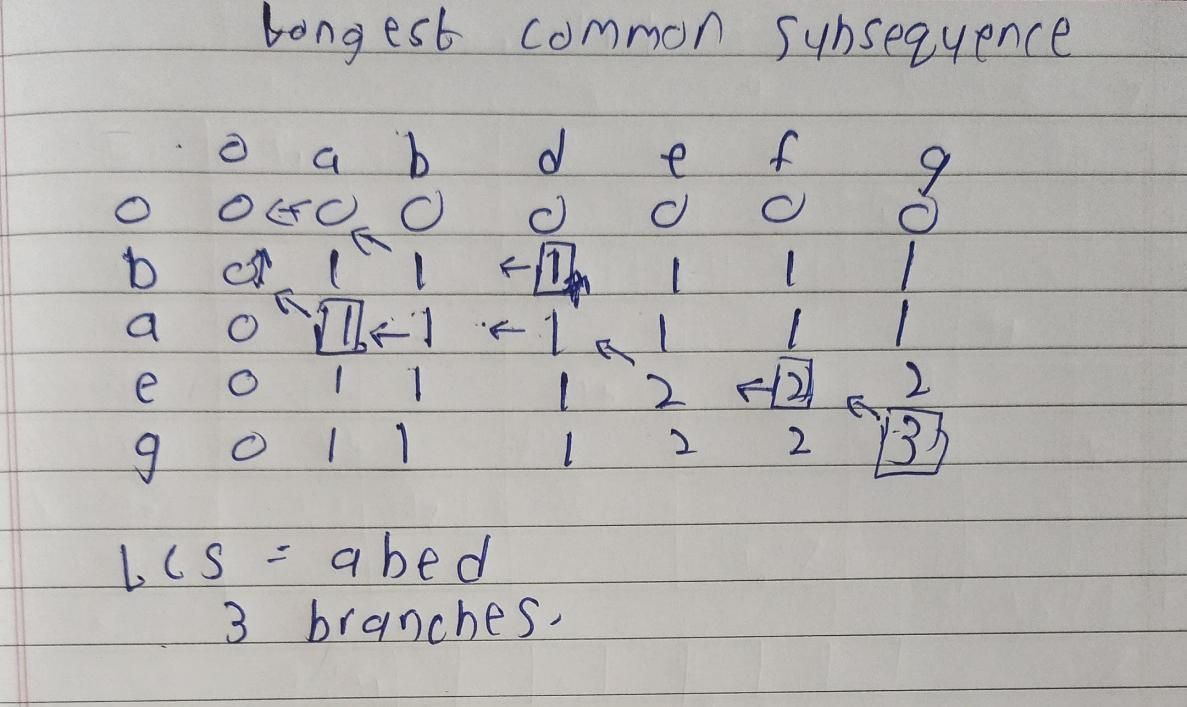 Longest common subsequence
0 a b d e f g
0 0 ← 0 0 0 0 0 0
b 0 ↑ 1 1 ← 1 1 1 1
a 0 1 ← 1 ← 1 1 1 1
e 0 1 1 1 2 ← 2 2
g 0 1 1 1 2 2 3
LCS = abed
3 branches.